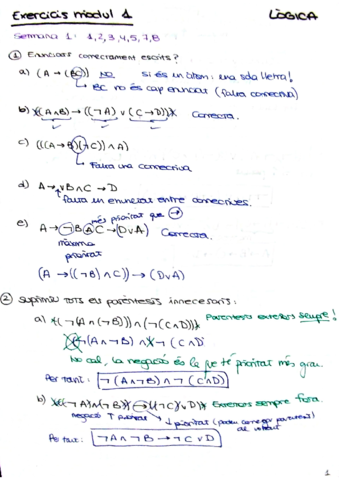 Exercicis mòdul 1 LÒGICA
Setmana 1: 1,2,3,4,5,7,8
① Enunciats correctament escrits?
a) (A → (BC)) NO. Si és un àtom: una sola lletra!
↳ BC no és cap enunciat (falta connectiva)
b) ((A∧B) → ((¬A) ∨ (C → D))) Correcta.
c) (((A → B)(¬C)) ∧ A)
↳ Falta una connectiva
d) A → ∨B ∧ C → D
falta un enunciat entre connectives.
e) A → ¬B ∧ C → (D∨A) Correcta.
més prioritat que →
màxima
prioritat
(A → ((¬B) ∧ C)) → (D∨A)
② Suprimir tots els parèntesis innecessaris:
a) ((¬(A ∧ (¬B))) ∧ (¬(C∧D))) Parèntesis exteriors sempre!
(¬(A ∧ ¬B) ∧ (¬(C∧D)
No cal, la negació és la que té prioritat més gran.
Per tant: ¬(A∧¬B) ∧ ¬(C∧D)
b) (((¬A)∧(¬B)) → ((¬C) ∨ D)) Exteriors sempre fora.
negació ↑ prioritat ↓ prioritat
Per tant: ¬A ∧ ¬B → ¬C ∨ D
1